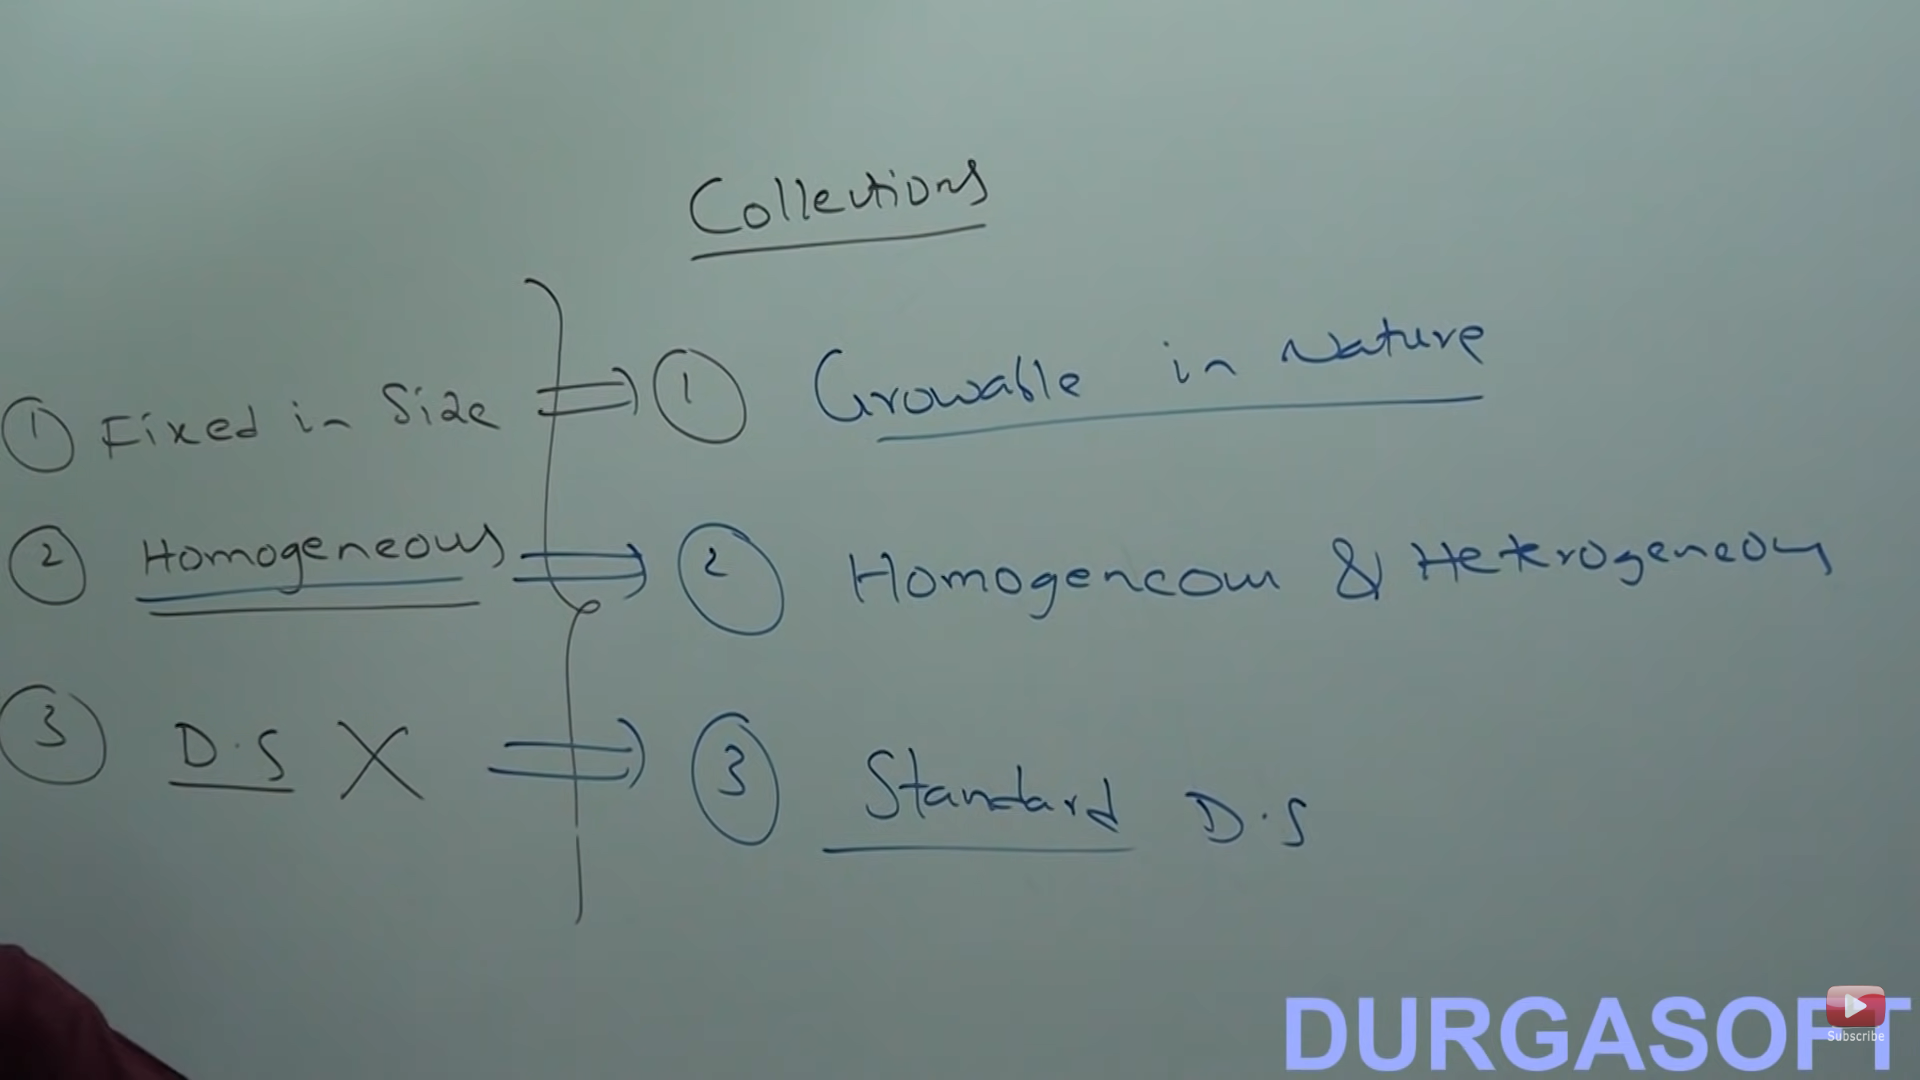 Collections
① Fixed in Size ⇒ ① Growable in Nature
② Homogeneous ⇒ ② Homogeneous & Heterogeneous
③ D.S X ⇒ ③ Standard D.S
DURGASOFT
Subscribe